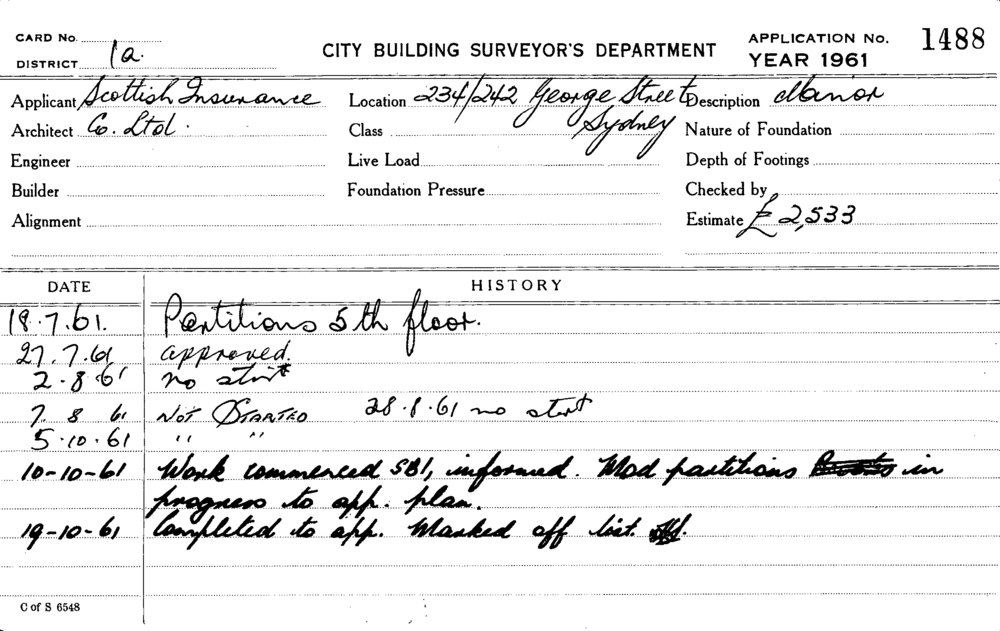 CARD No.
DISTRICT 1a.
CITY BUILDING SURVEYOR'S DEPARTMENT
APPLICATION No. 1488
YEAR 1961
Applicant Scottish Insurance Location 234/242 George Street Description Minor
Architect Co. Ltd. Class Sydney Nature of Foundation
Engineer Live Load Depth of Footings
Builder Foundation Pressure Checked by
Alignment Estimate £2,533
DATE HISTORY
18.7.61. Partitions 5th floor.
27.7.61 approved.
2.8.61 no start
7. 8 61 NOT STARTED 28.8.61 no start
5.10.61 " "
10-10-61 Work commenced SB1, informed. Mod partitions in
progress to app. plan.
19-10-61 Completed to app. Marked off list.
C of S 6548